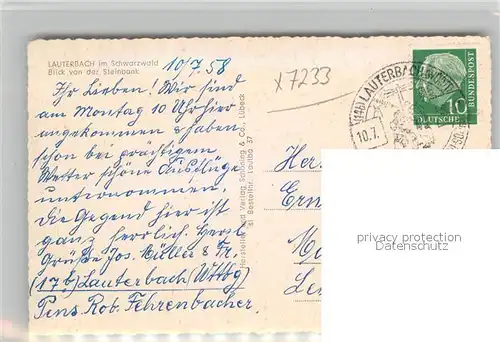 LAUTERBACH im Schwarzwald
Blick von der Steinbank
10/7.58
x7233
Ihr Lieben! Wir sind
am Montag 10 Uhr hier
angekommen & haben
schon bei prächtigem
Wetter schöne Ausflüge
unternommen.
Die Gegend hier ist
ganz herrlich. Herzl.
Grüße Jos. Müller & Fr.
(17b) Lauterbach (Wttbg)
Pens. Rob. Fehrenbacher.
Herstellung und Verlag Schöning & Co., Lübeck
Bestellnr. Lautba 37
(14b) LAUTERBACH
10.7.
10
DEUTSCHE
BUNDESPOST
Her
Ern
privacy protection
Datenschutz